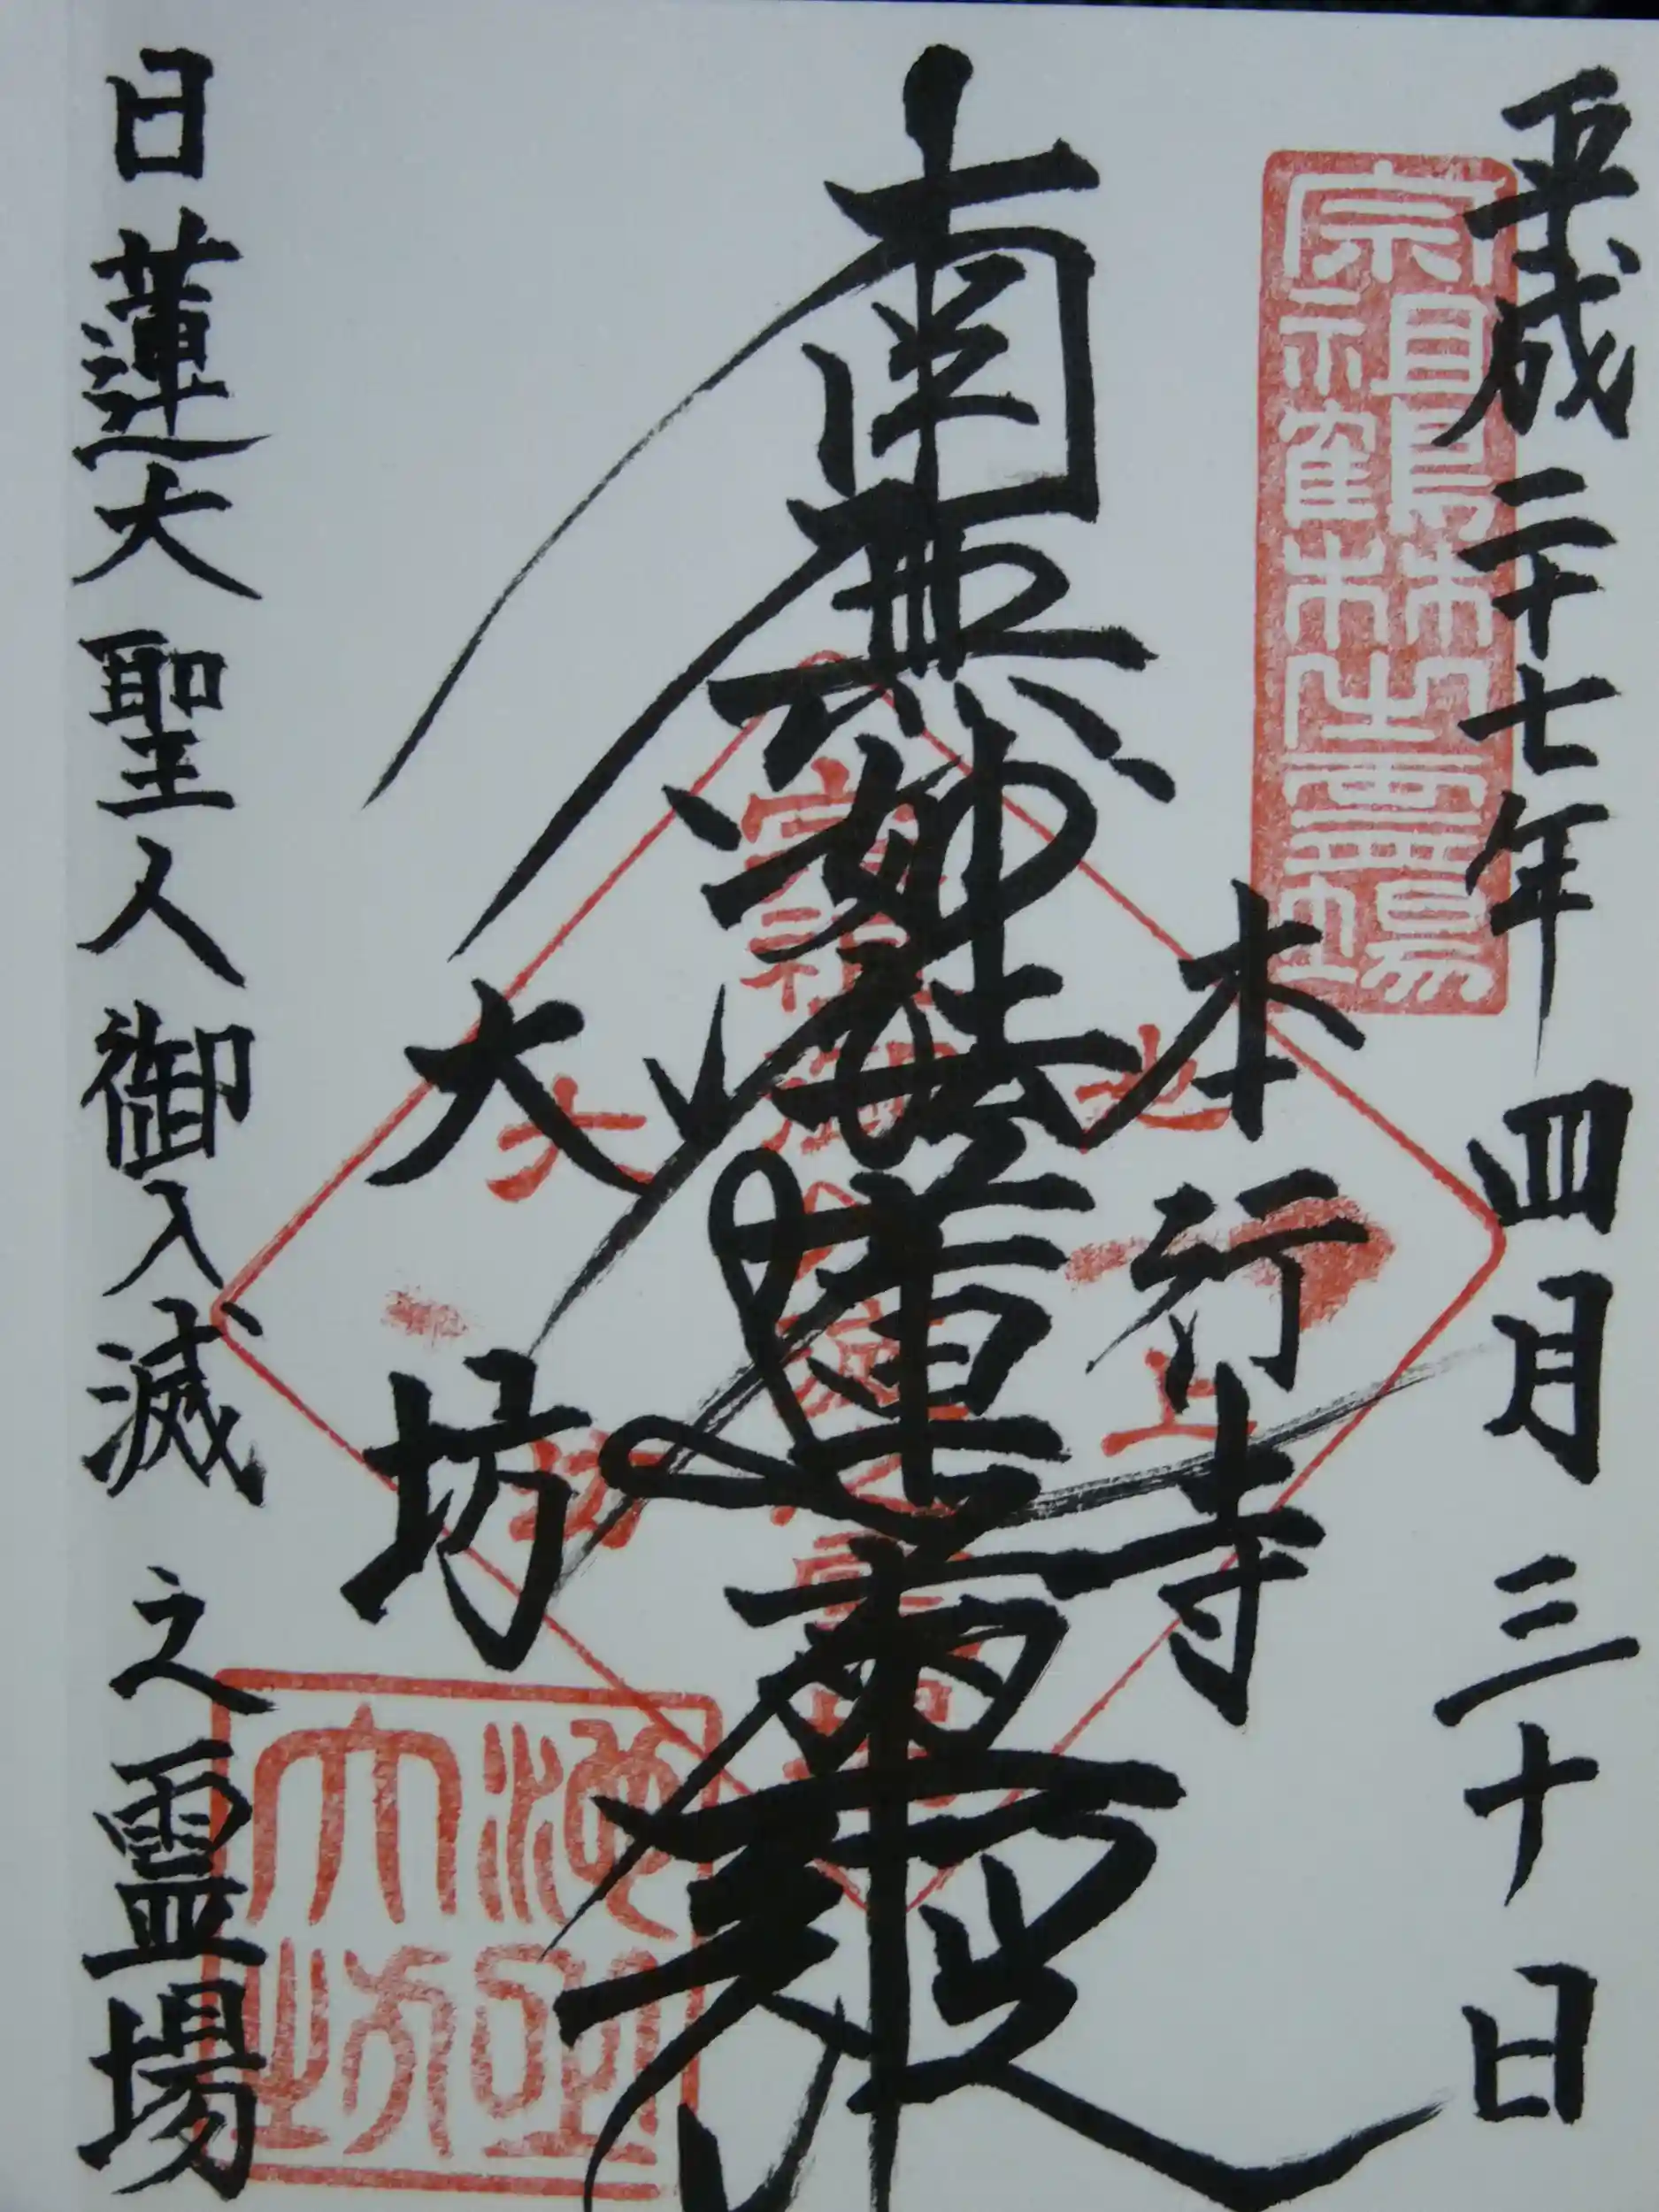 平成二十七年四月三十日
宗祖鶴林之霊場
本行寺
南無妙法蓮華経
大坊
池上
大坊
日蓮大聖人御入滅之霊場